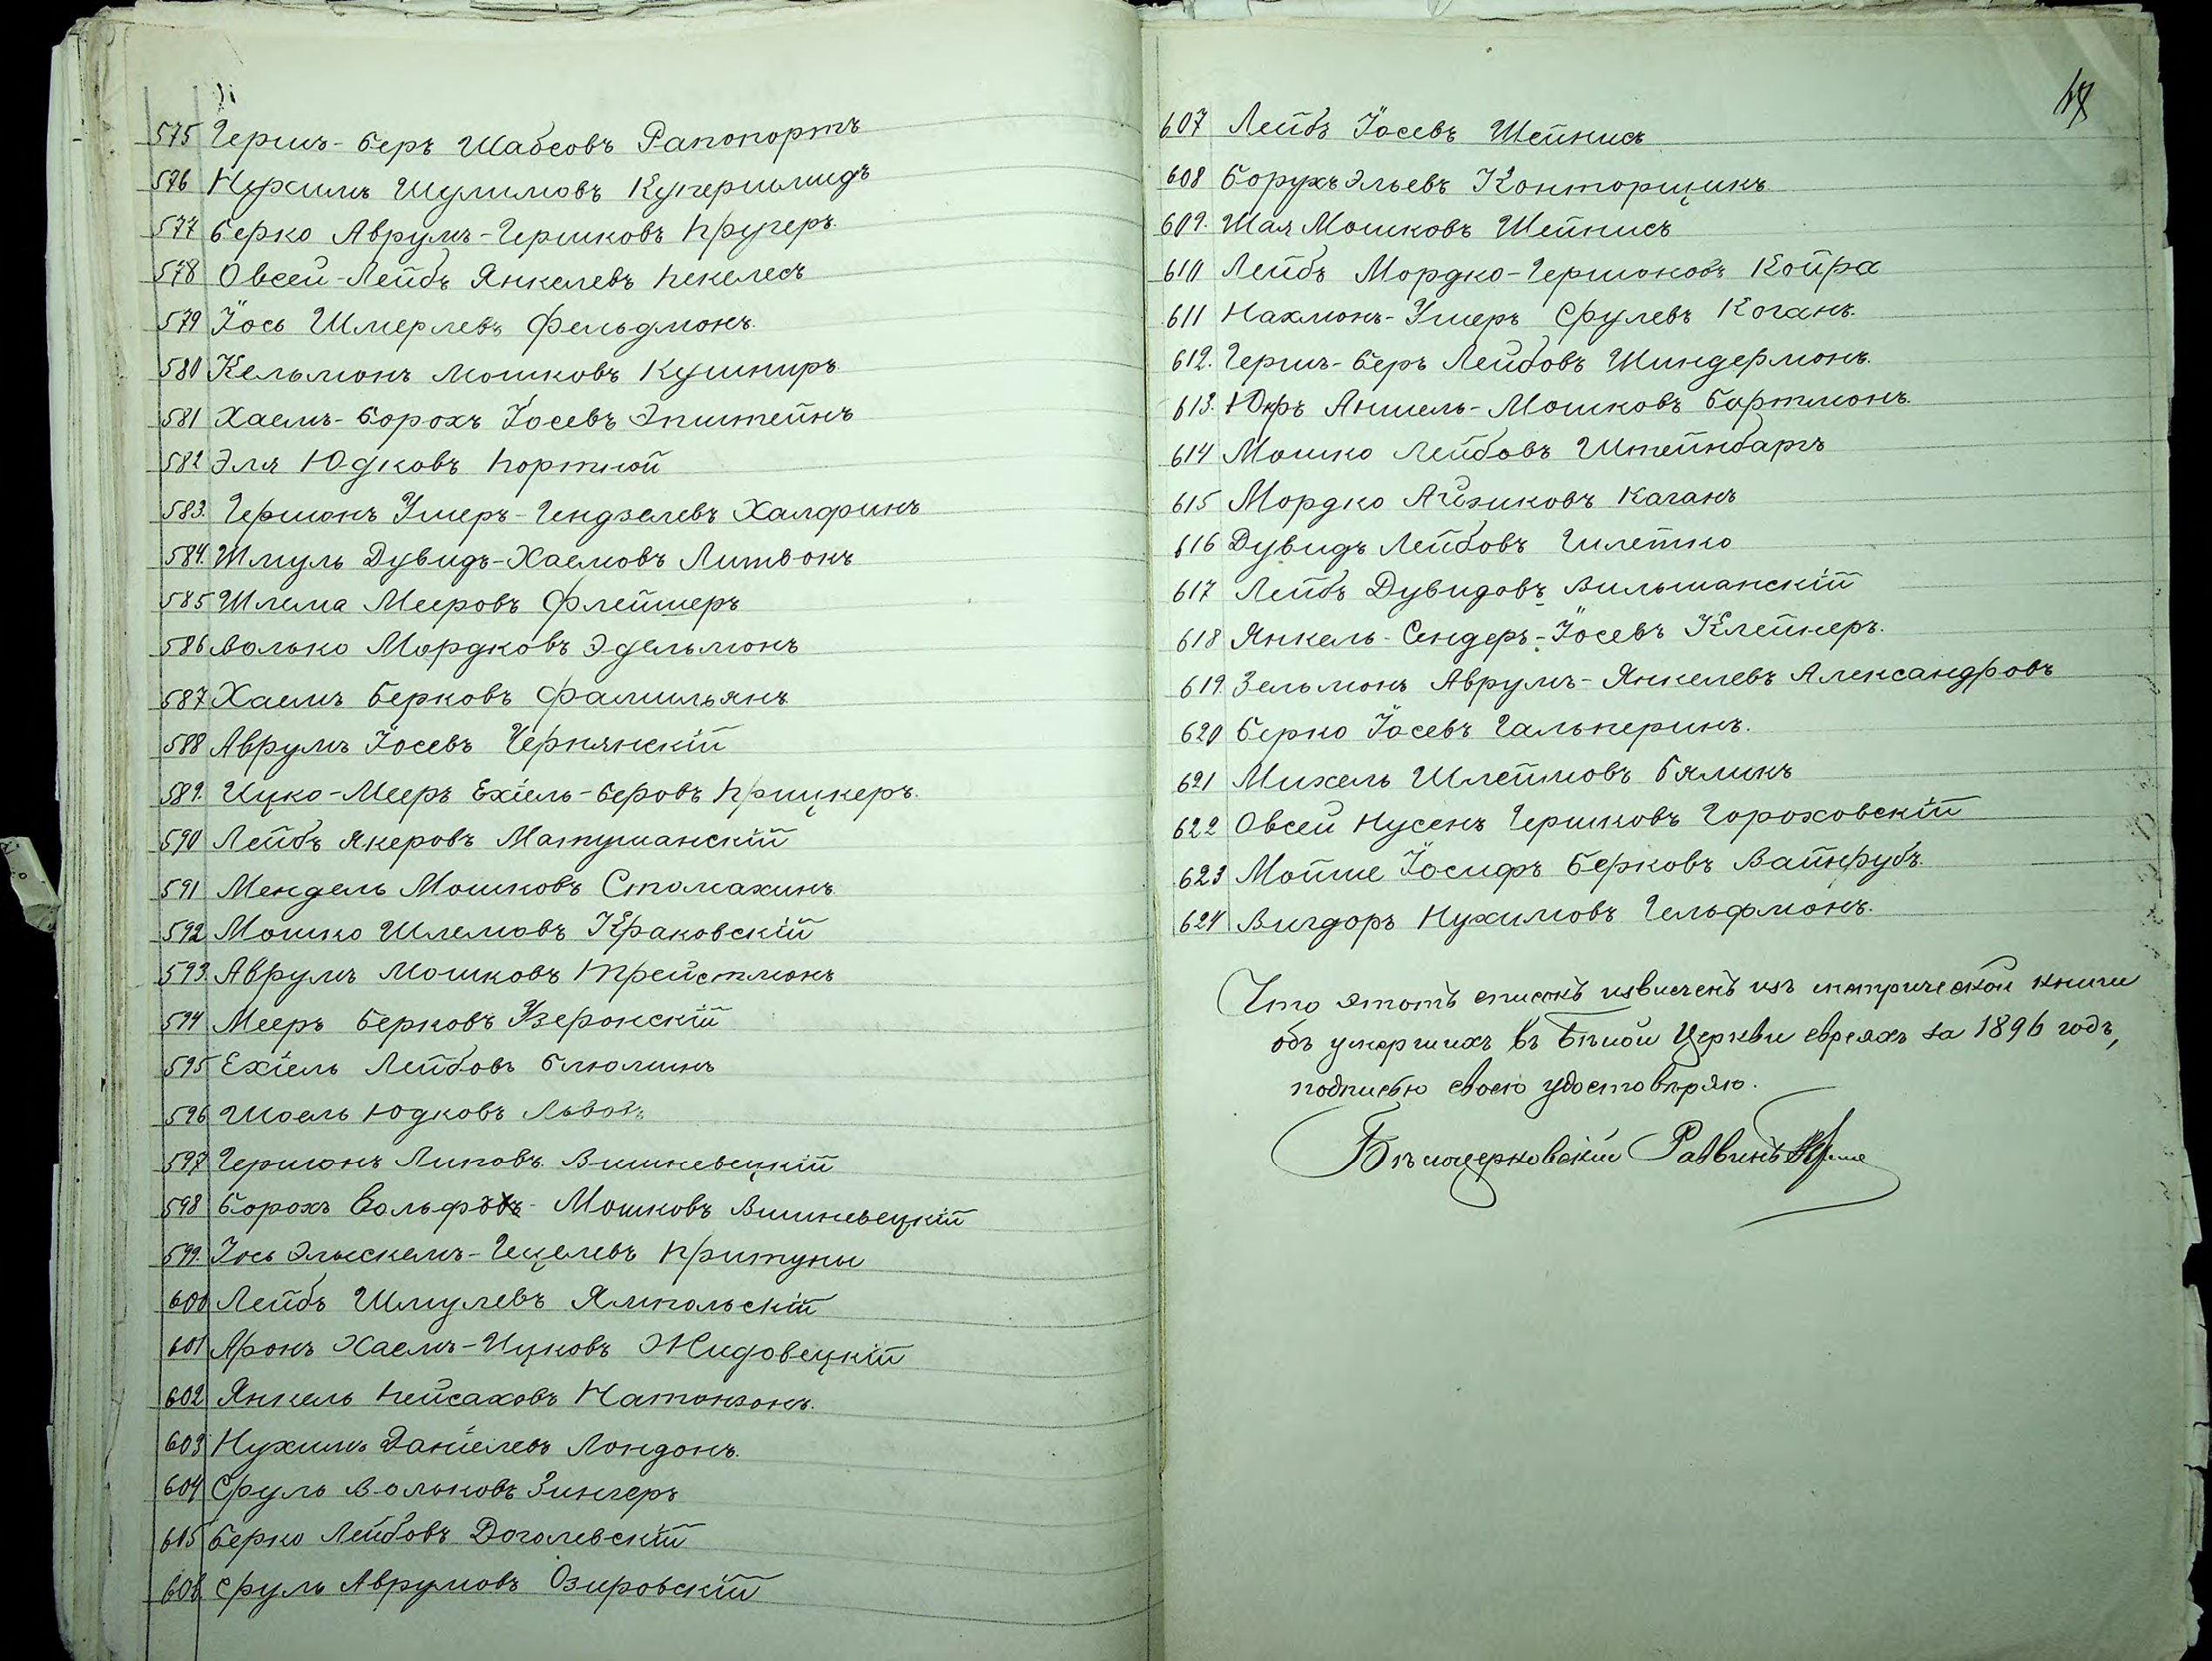 575 Гершъ-Беръ Шабсовъ Рапопортъ
576 Нухимъ Шулимовъ Купершмидъ
577 Берко Аврумъ-Гершковъ Кругеръ.
578 Овсей-Лейбъ Янкелевъ Пекелесъ
579 Іось Шмерлевъ Фельдмонъ.
580 Кельмонъ Мошковъ Кушниръ.
581 Хаемъ-Борохъ Іосевъ Эпштейнъ
582 Эля Юдковъ Портной
583. Гершонъ Ушеръ-Гендзелевъ Халфинъ
584. Шмуль Дувидъ-Хаемовъ Литвонъ
585 Шлема Мееровъ Флейшеръ
586 Волько Мордковъ Эдельмонъ
587 Хаемъ Берковъ Фамильянъ.
588 Аврумъ Іосевъ Чернянскій
589. Ицко-Мееръ Ехіель-Беровъ Прицкеръ.
590 Лейбъ Якеровъ Матушанскій
591 Мендель Мошковъ Столмахинъ.
592 Мошко Шлемовъ Краковскій
593. Аврумъ Мошковъ Трейстмонъ
594 Мееръ Берковъ Узеронскій
595 Ехіель Лейбовъ Блюминъ
596 Шоель Юдковъ Львовъ
597 Гершонъ Липовъ Вишневецкій
598 Борохъ Вольфъ- Мошковъ Вишневецкій
599. Іось Эльскемъ-Гецелевъ Притуны
600 Лейбъ Шмулевъ Ямпольскій
601 Аронъ Хаемъ-Ицковъ Жидовецкій
602 Янкель Пейсаховъ Натонзонъ.
603 Нухимъ Даніелевъ Лондонъ.
604 Сруль Вольковъ Зингеръ
605 Берко Лейбовъ Доголевскій
606. Сруль Аврумовъ Озировскій
607 Лейбъ Іосевъ Шейнисъ
608 Борухъ Эльевъ Конторщикъ.
609. Шая Мошковъ Шейнисъ
610 Лейбъ Мордко-Гершоновъ Койра
611 Нахмонъ-Ушеръ Срулевъ Коганъ.
612. Гершъ-Беръ Лейбовъ Шиндермонъ.
613. Юкръ Аншель-Мошковъ Бортмонъ.
614 Мошко Лейбовъ Штейнбаргъ
615 Мордко Айзиковъ Каганъ
616 Дувидъ Лейбовъ Гилетко
617 Лейбъ Дувидовъ Вильшанскій
618 Янкель-Сендеръ-Іосевъ Клейнеръ.
619. Зельмонъ Аврумъ-Янкелевъ Александровъ
620 Берко Іосевъ Гальперинъ.
621 Михель Шлеймовъ Бяликъ
622 Овсей Нусенъ Гершковъ Гороховскій
623 Мойше Іосифъ Берковъ Вайнрубъ.
624 Вигдоръ Нухимовъ Гельфмонъ.
Что этотъ списокъ извлеченъ изъ метрической книги
объ умершихъ въ Бѣлой Церкви евреяхъ за 1896 годъ,
подписью своею удостовѣряю.
Бѣлоцерковскій Раввинъ